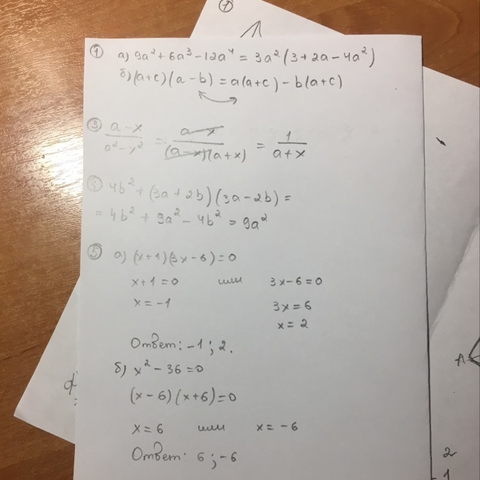 ① а) 9a² + 6a³ - 12a⁴ = 3a² (3 + 2a - 4a²)
б) (a+c)(a-b) = a(a+c) - b(a+c)
③ a-x / a²-x² = a-x / (a-x)(a+x) = 1 / a+x
④ 4b² + (3a + 2b)(3a - 2b) =
= 4b² + 9a² - 4b² = 9a²
⑤ а) (x+1)(3x-6) = 0
x+1=0 или 3x-6=0
x = -1 3x = 6
x = 2
Ответ: -1; 2.
б) x² - 36 = 0
(x-6)(x+6)=0
x = 6 или x = -6
Ответ: 6; -6
A
2
1